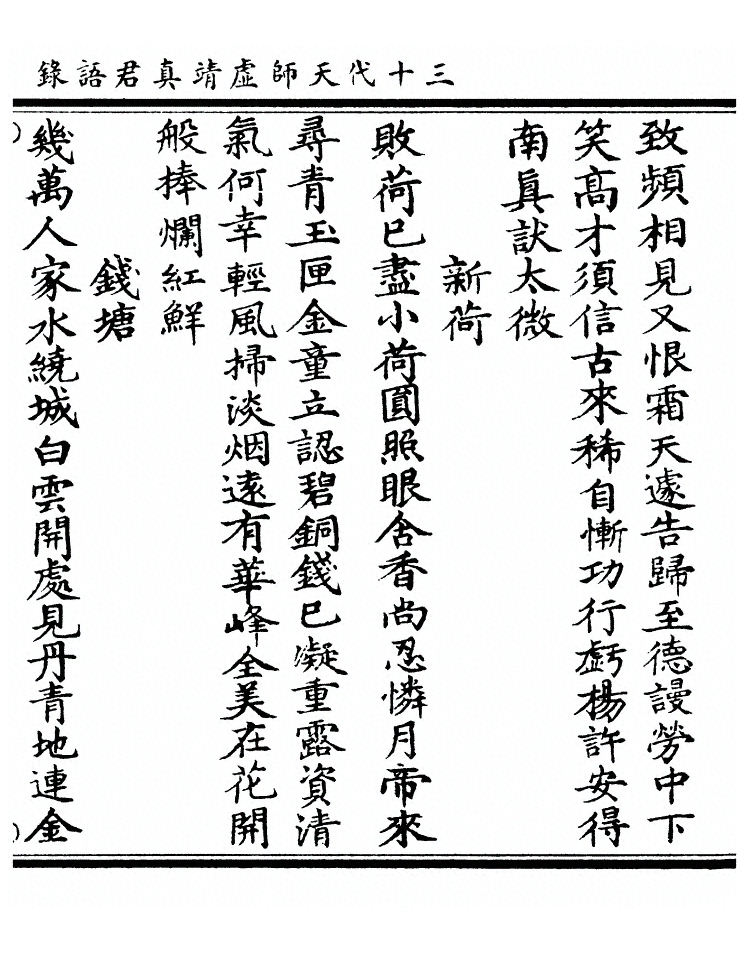 三十代天師虛靖真君語錄
致頻相見又恨霜天遽告歸至德謾勞中下
笑高才須信古來稀自慚功行虧楊許安得
南真訣太微
新荷
敗荷已盡小荷圓照眼含香尚忍憐月帝來
尋青玉匣金童立認碧銅錢已凝重露資清
氣何幸輕風掃淡烟遠有華峰全美在花開
般捧爛紅鮮
錢塘
幾萬人家水繞城白雲開處見丹青地連金